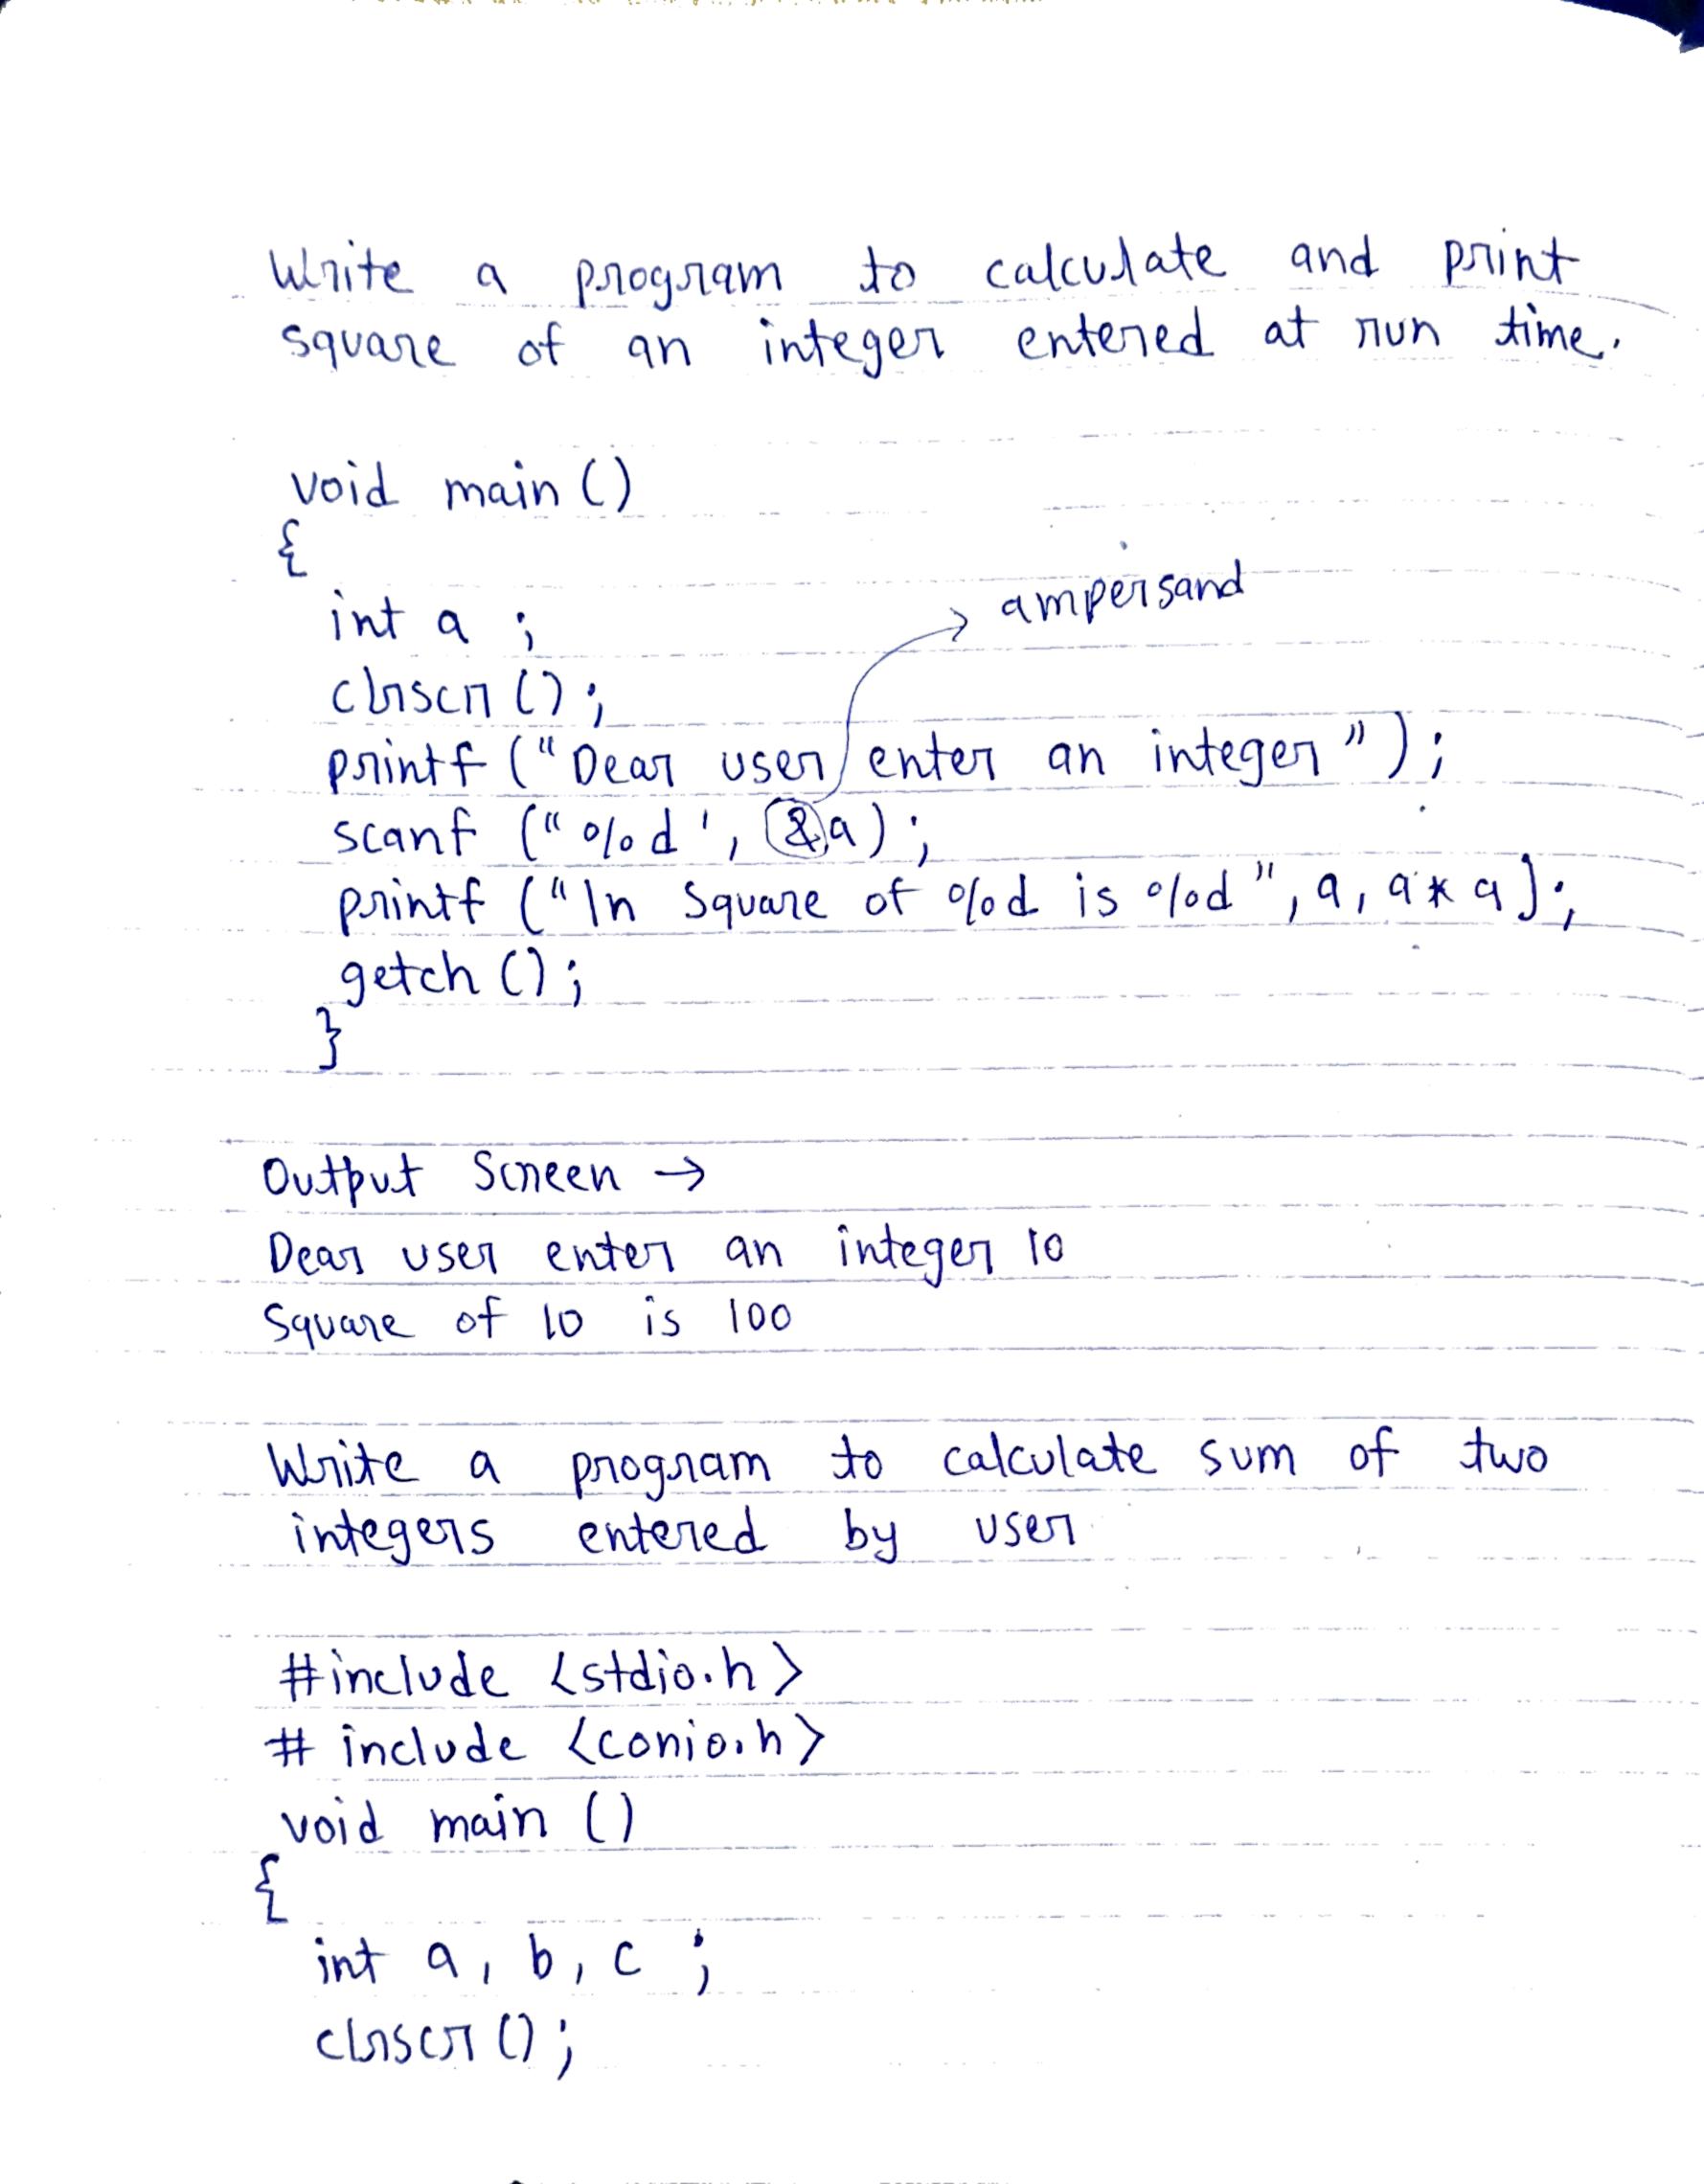 Write a program to calculate and print
square of an integer entered at run time.
void main ()
{
int a ;
ampersand
clrscr ();
printf ("Dear user enter an integer");
scanf ("%d', &a);
printf ("\n Square of %d is %d", a, a*a];
getch ();
}
Output Screen →
Dear user enter an integer 10
Square of 10 is 100
Write a program to calculate sum of two
integers entered by user
#include <stdio.h>
# include <conio.h>
void main ()
{
int a, b, c ;
clrscr ();